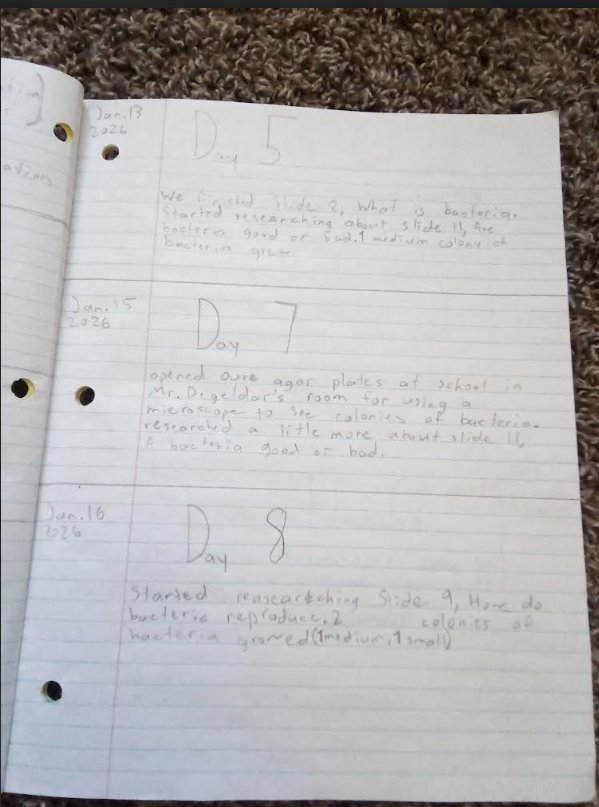 Jan. 13
2026
Day 5
We finished slide 2, What is bacteria.
Started researching about slide 11, Are
bacteria good or bad. 1 medium colony of
bacteria grew.
Jan. 15
2026
Day 7
opened oure agar plates at school in
Mr. Degeldar's room for using a
microscope to see colonies of bacteria.
researched a little more about slide 11,
bacteria good or bad.
Jan. 16
2026
Day 8
Started slide 9, How do
bacteria reproduce, 2 colonies of
bacteria growed (1 medium, 1 small)